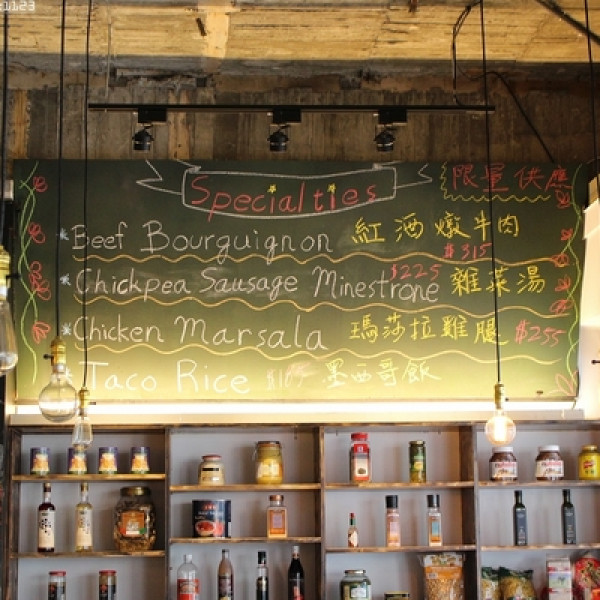 Specialties 限量供應
Beef Bourguignon 紅酒燉牛肉 $315
Chickpea Sausage Minestrone $225 雜菜湯
Chicken Marsala 瑪莎拉雞腿 $255
Taco Rice 墨西哥飯